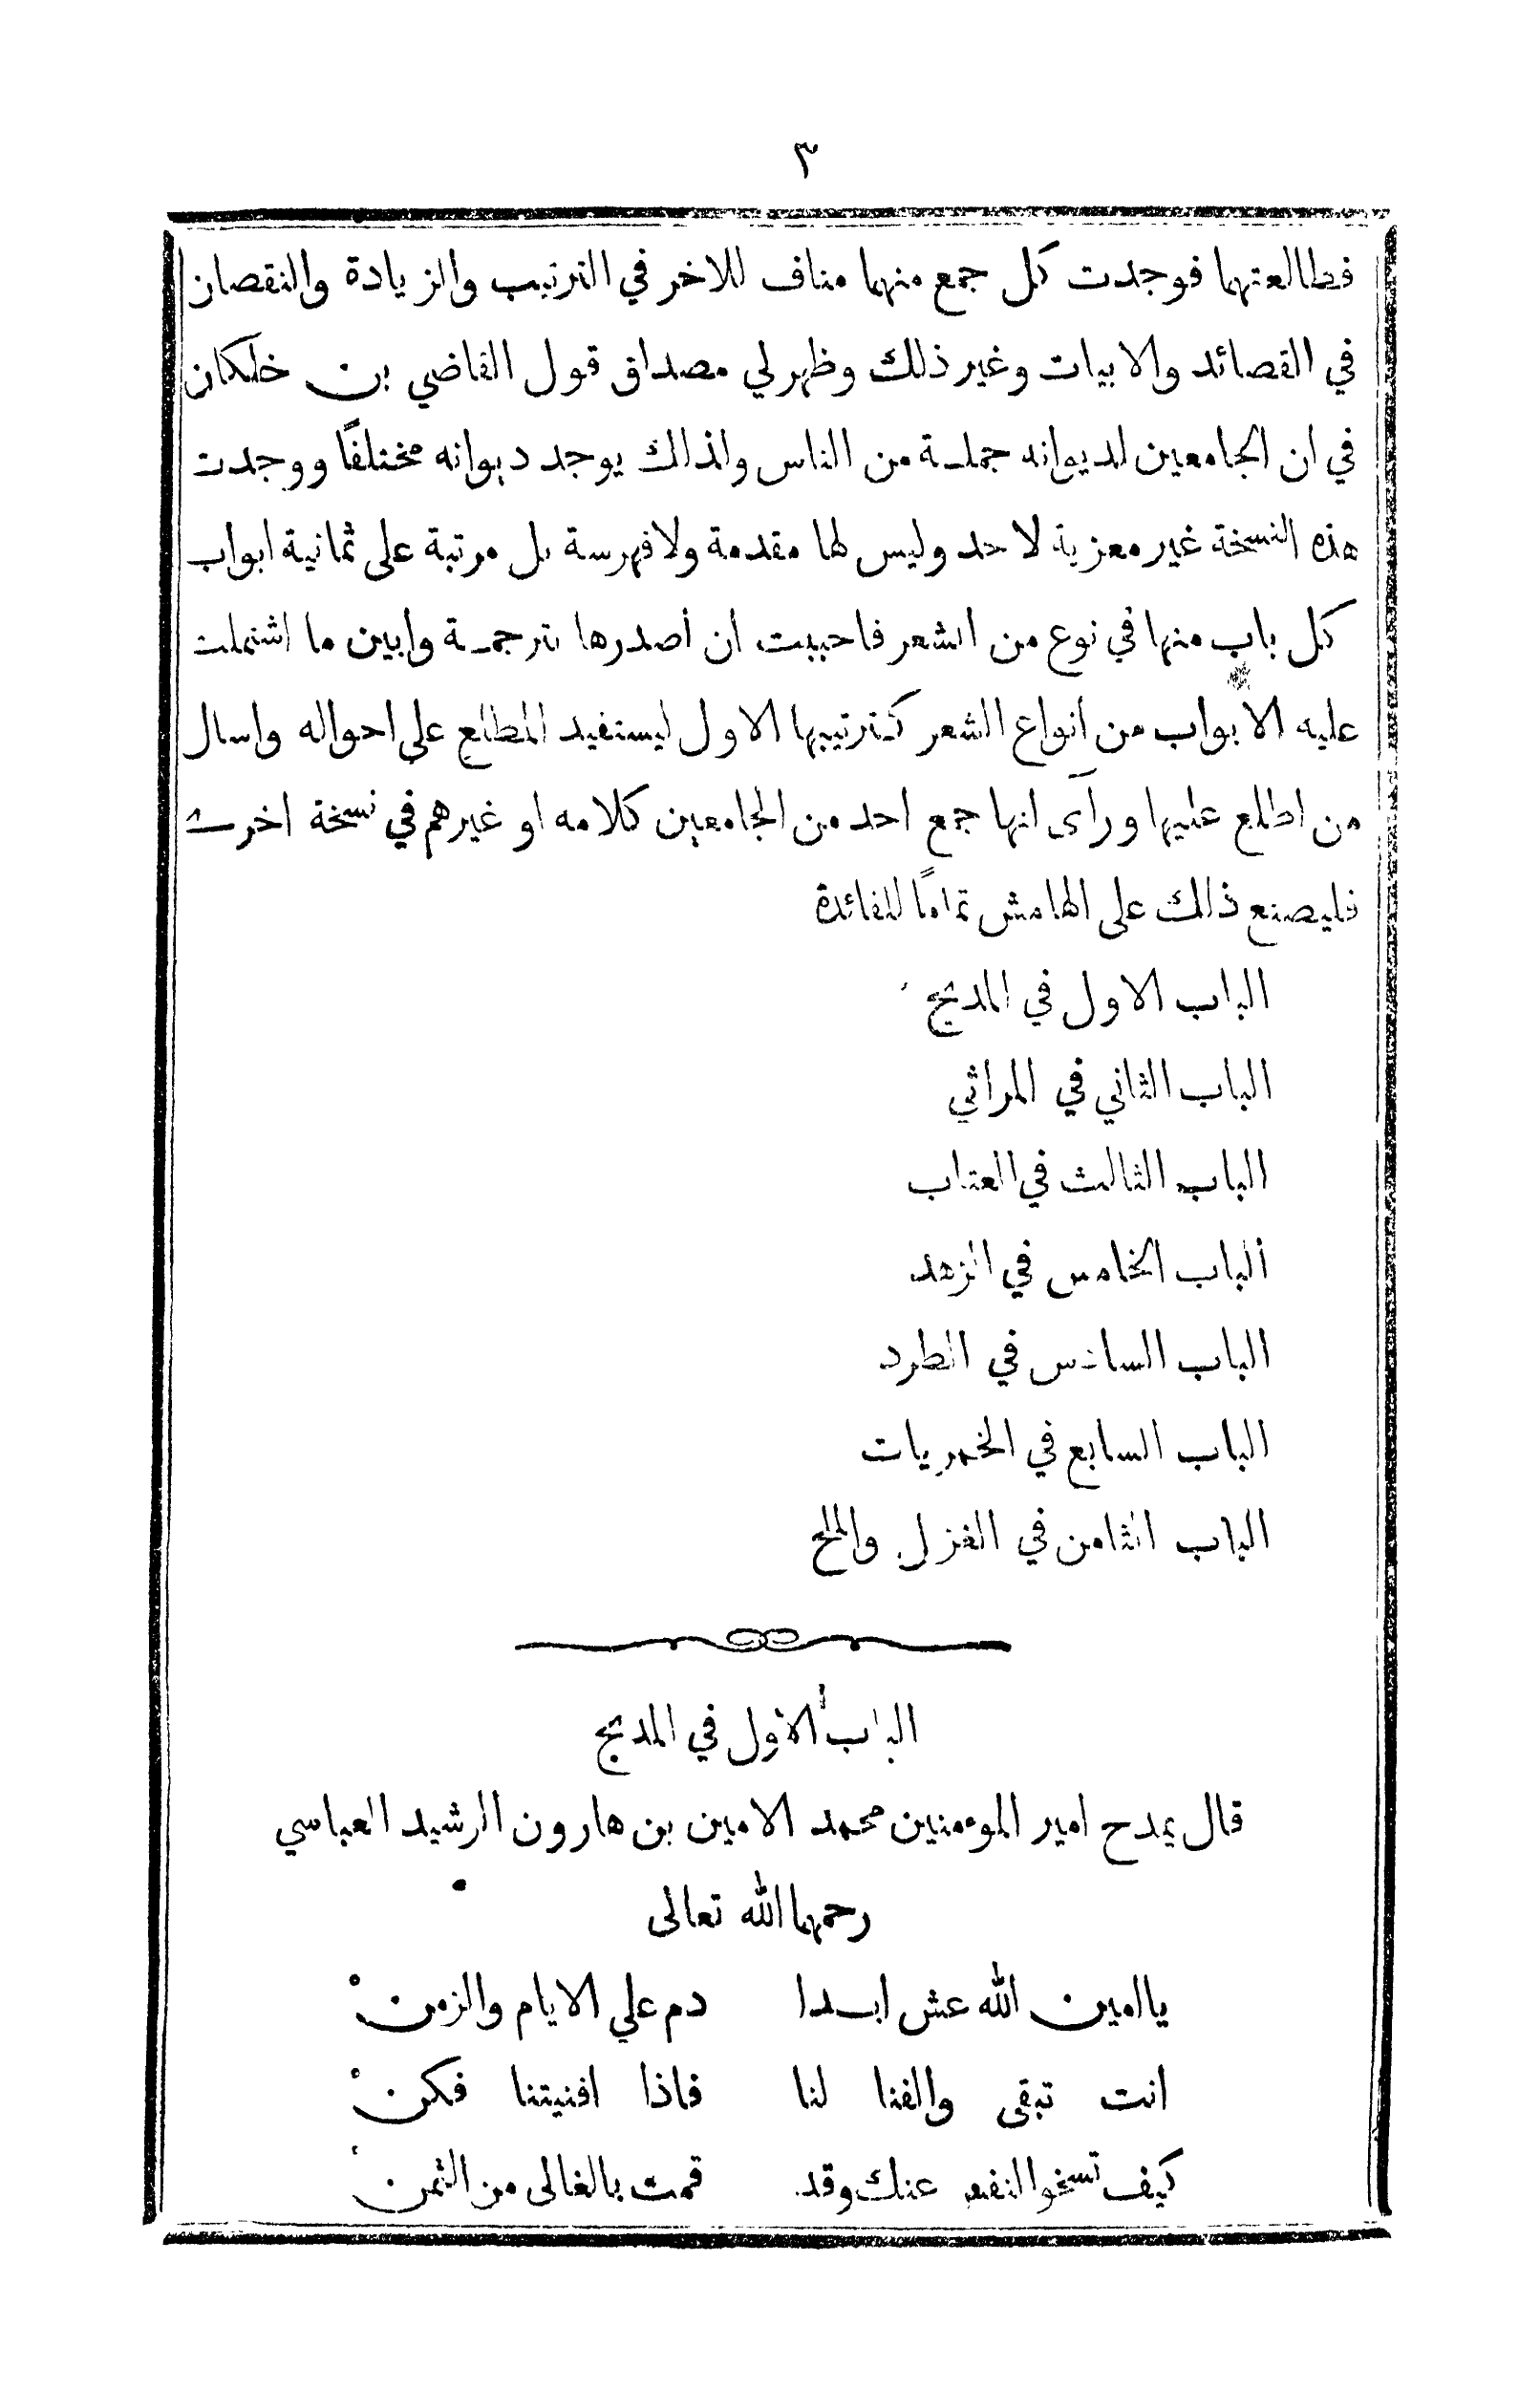 ٣
فطالعتهما فوجدت كل جمع منهما مناف للاخر في الترتيب والزيادة والنقصان
في القصائد والابيات وغير ذلك وظهر لي مصداق قول القاضي بن خلكان
في ان الجامعين لديوانه جملة من الناس ولذالك يوجد ديوانه مختلفًا ووجدت
هذه النسخة غير معزية لاحد وليس لها مقدمة ولا فهرسة بل مرتبة على ثمانية ابواب
كل باب منها في نوع من الشعر فاحببت ان أصدرها بترجمة وابين ما اشتملت
عليه الابواب من انواع الشعر كترتيبها الاول ليستفيد المطلع على احواله واسال
من اطلع عليها ورآى انها جمع احد من الجامعين كلامه او غيرهم في نسخة اخرى
فليصنع ذالك على الهامش تمامًا للفائدة
الباب الاول في المديح
الباب الثاني في المراثي
الباب الثالث في العتاب
الباب الخامس في الزهد
الباب السادس في الطرد
الباب السابع في الخمريات
الباب الثامن في الغزل والملح
الباب الأول في المديح
قال يمدح امير المومنين محمد الامين بن هارون الرشيد العباسي
رحمهما الله تعالى
يا امين الله عش ابدا دم علي الايام والزمنْ
انت تبقى والفنا لنا فاذا افنيتنا فكنْ
كيف تسخو النفس عنك وقد قمت بالغالى من الثمنْ